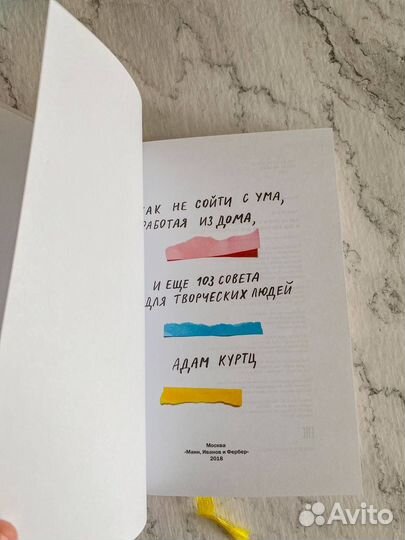 КАК НЕ СОЙТИ С УМА,
РАБОТАЯ ИЗ ДОМА,
И ЕЩЕ 103 СОВЕТА
ДЛЯ ТВОРЧЕСКИХ ЛЮДЕЙ
АДАМ КУРТЦ
Москва
«Манн, Иванов и Фербер»
2018
Avito